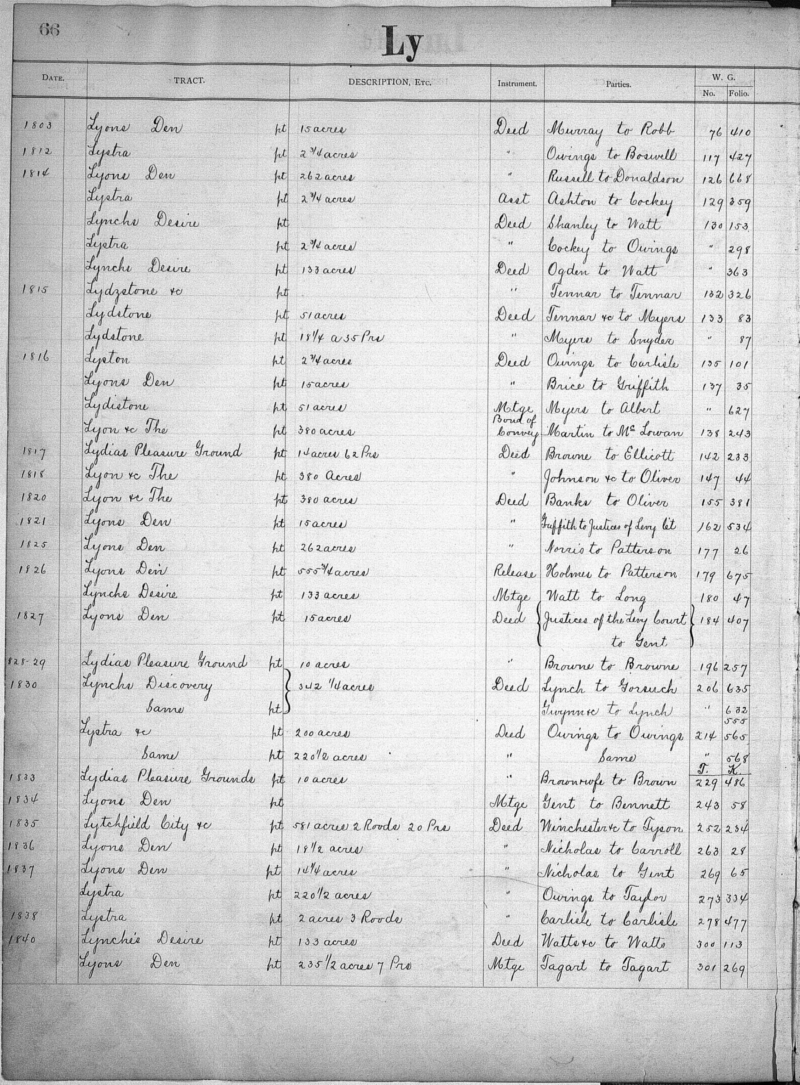 66
Ly
DATE. TRACT. DESCRIPTION, ETC. Instrument. Parties. W. G. No. Folio.
1803 Lyons Den pt 15 acres Deed Murray to Robb 76 410
1812 Lystra pt 2 3/4 acres " Owings to Boswell 117 427
1814 Lyons Den pt 262 acres " Russell to Donaldson 126 668
Lystra pt 2 3/4 acres Asst Ashton to Cockey 129 359
Lynchs Desire pt Deed Shanley to Watt 130 153
Lystra pt 2 3/4 acres " Cockey to Owings " 298
Lynchs Desire pt 133 acres Deed Ogden to Watt " 363
1815 Lydzstone &c pt " Tennar to Tennar 132 326
Lydstone pt 51 acres Deed Tennar &c to Myers 133 83
Lydstone pt 18 1/4 a 35 Prs " Myers to Snyder " 87
1816 Lyston pt 2 3/4 acres Deed Owings to Carlisle 135 101
Lyons Den pt 15 acres " Brice to Griffith 137 35
Lydistone pt 51 acres Mtge Myers to Albert " 627
Lyon &c The pt 380 acres Bond of Convey Martin to Mc Lowan 138 243
1817 Lydias Pleasure Ground pt 14 acres 62 Prs Deed Browne to Ellicott 142 233
1818 Lyon &c The pt 380 Acres " Johnson &c to Oliver 147 44
1820 Lyon &c The pt 380 acres Deed Banks to Oliver 155 381
1821 Lyons Den pt 15 acres " Griffith to Justices of Levy Ct 162 534
1825 Lyons Den pt 262 acres " Norris to Patterson 177 26
1826 Lyons Den pt 555 3/4 acres Release Holmes to Patterson 179 675
Lynchs Desire pt 133 acres Mtge Watt to Long 180 47
1827 Lyons Den pt 15 acres Deed Justices of the Levy Court 184 407
to Gent
828-29 Lydias Pleasure Ground pt 10 acres " Browne to Browne 196 257
1830 Lynchs Discovery 342 1/4 acres Deed Lynch to Gorsuch 206 635
Same pt Gwynn &c to Lynch " 632
555
Lystra &c pt 200 acres Deed Owings to Owings 214 565
Same pt 220 1/2 acres " Same " 568
T. K.
1833 Lydias Pleasure Grounds pt 10 acres " Brown & wife to Brown 229 486
1834 Lyons Den pt Mtge Gent to Bennett 243 58
1835 Lytchfield City &c pt 581 acres 2 Roods 20 Prs Deed Winchester &c to Tyson 252 234
1836 Lyons Den pt 18 1/2 acres " Nicholas to Carroll 263 28
1837 Lyons Den pt 14 1/4 acres " Nicholas to Gent 269 65
Lystra pt 220 1/2 acres " Owings to Taylor 273 334
1838 Lystra pt 2 acres 3 Roods " Carlisle to Carlisle 278 477
1840 Lynchis Desire pt 133 acres Deed Watts &c to Watts 300 113
Lyons Den pt 235 1/2 acres 7 Prs Mtge Tagart to Tagart 301 269